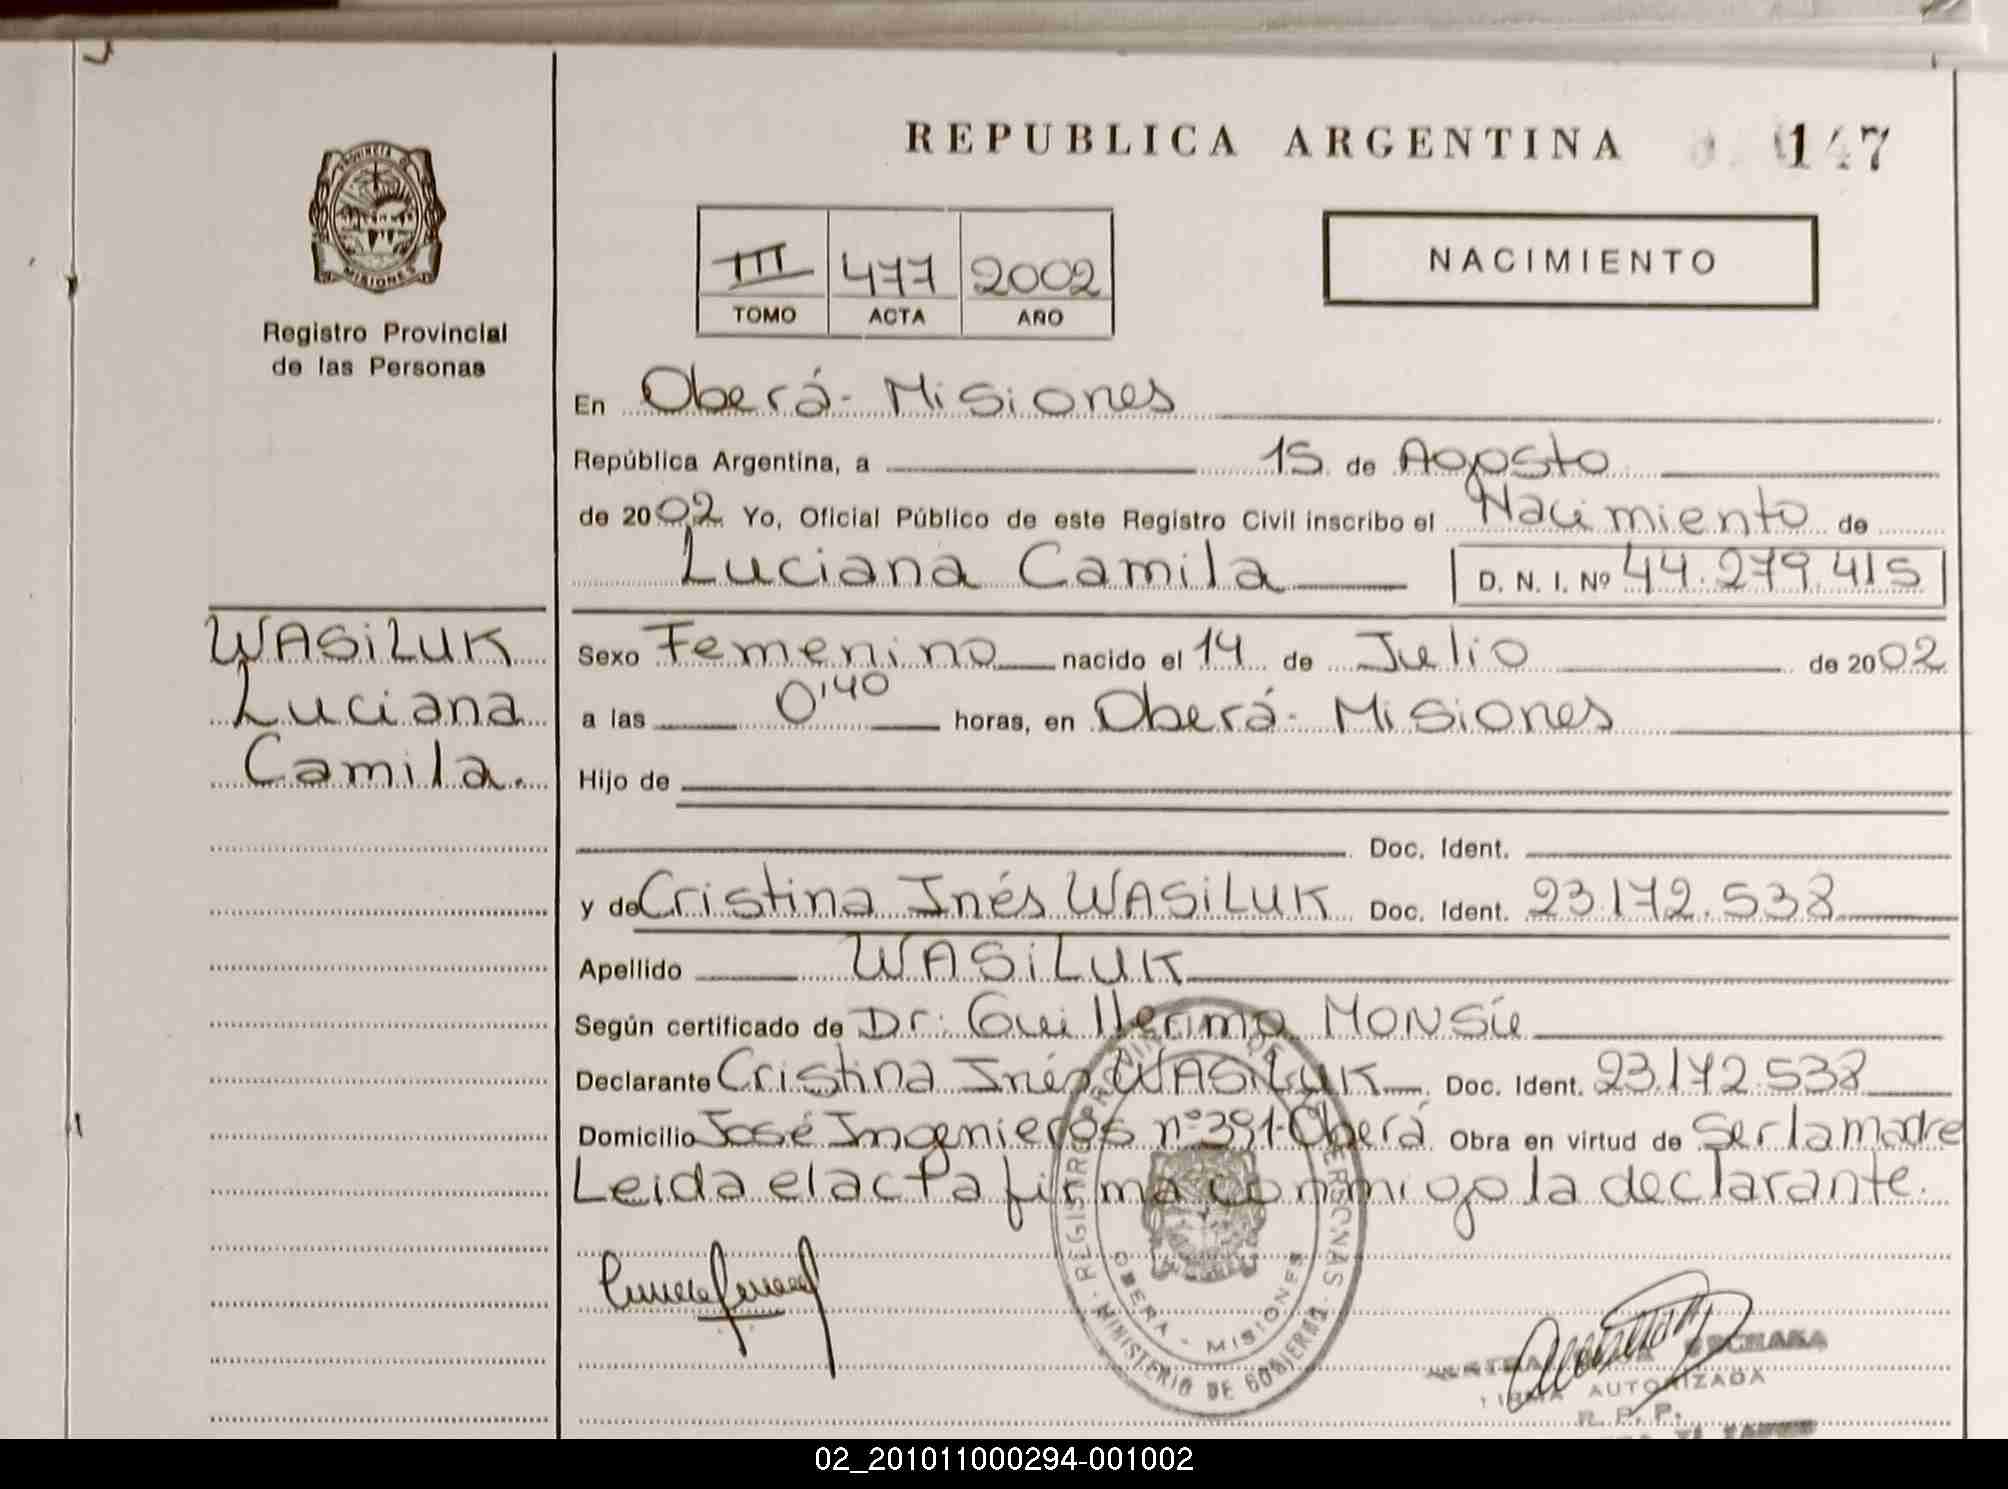 REPUBLICA ARGENTINA
PROVINCIA DE
MISIONES
Registro Provincial
de las Personas
III 477 2002
TOMO ACTA AÑO
NACIMIENTO
En Oberá - Misiones
República Argentina, a 15 de Agosto
de 2002 Yo, Oficial Público de este Registro Civil inscribo el Nacimiento de
Luciana Camila D. N. I. Nº 44.279.415
WASiLUK
Luciana
Camila.
Sexo Femenino nacido el 14 de Julio de 2002
a las 0'40 horas, en Oberá - Misiones
Hijo de
Doc. Ident.
y de Cristina Inés WASiLUK Doc. Ident. 23.172.538
Apellido WASiLUK
Según certificado de Dr. Guillermo
Declarante Cristina Inés WASiLUK Doc. Ident. 23.172.538
Domicilio José Ingenieros nº 391-Oberá Obra en virtud de Ser la madre
Leida el acta firma conmigo la declarante.
REGISTRO PROVINCIAL DE LAS PERSONAS
OBERA - MISIONES
MINISTERIO DE GOBIERNO
FIRMA AUTORIZADA
R. P. P.
02_201011000294-001002